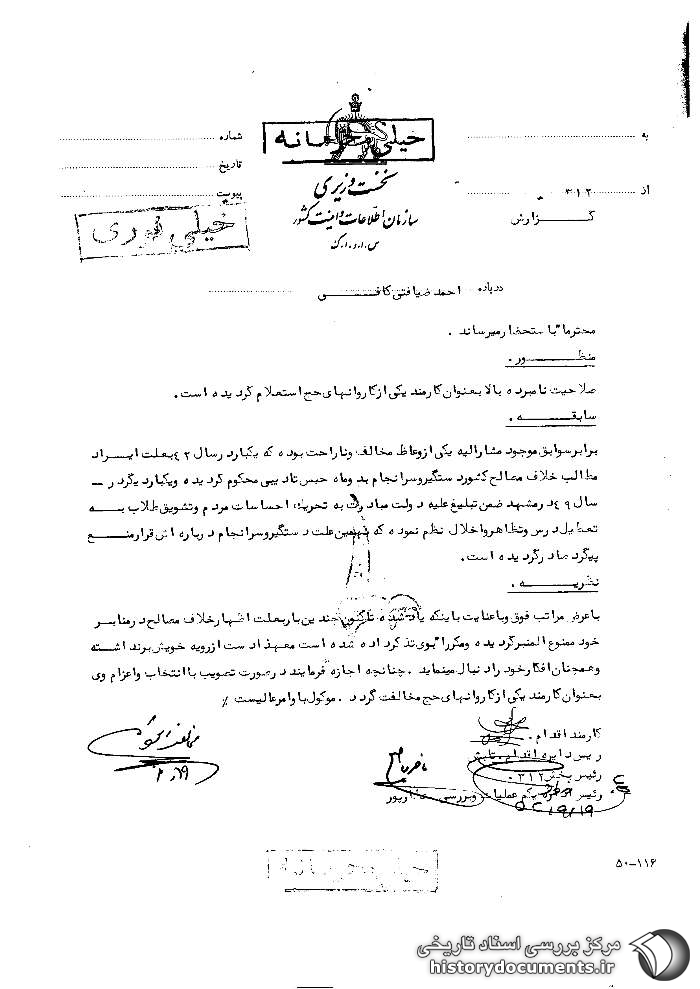 به
شماره
خیلی محرمانه
تاریخ
نخست وزیری
از ۳۱۲
پیوست
سازمان اطلاعات و امنیت کشور
گزارش
س.ا.و.ا.ک
خیلی فوری
درباره احمد ضیافتی کافی
محترما" باستحضار میرساند .
منظور .
صلاحیت نامبرده بالا بعنوان کارمند یکی از کاروانهای حج استعلام گردیده است .
سابقه .
برابر سوابق موجود مشارالیه یکی از وعاظ مخالف و ناراحت بوده که یکبار در سال ۴۲ بعلت ایراد
مطالب خلاف مصالح کشور دستگیر و سرانجام بدو ماه حبس تادیبی محکوم گردیده و یکبار دیگر در –
سال ۴۹ در مشهد ضمن تبلیغ علیه دولت مبادرت به تحریک احساسات مردم و تشویق طلاب به
تعطیل درس و تظاهر و اخلال نظم نموده که بهمین علت دستگیر و سرانجام درباره اش قرار منع
پیگرد صادر گردیده است .
نظریه .
با عرض مراتب فوق و با عنایت باینکه یاد شده تاکنون چندین بار بعلت اظهار خلاف مصالح در منابر
خود ممنوع المنبر گردیده و مکررا" بوی تذکر داده شده است معهذا دست از رویه خویش برنداشته
و همچنان افکار خود را دنبال مینماید . چنانچه اجازه فرمایند در صورت تصویب با انتخاب و اعزام وی
بعنوان کارمند یکی از کاروانهای حج مخالفت گردد . موکول باوامر عالیست ٪
کارمند اقدام .
رئیس دایره اقدام .
رئیس بخش ۳۱۲ .
رئیس اداره یکم عملیات و بررسی
۵۰-۱۱۶
مرکز بررسی اسناد تاریخی
historydocuments.ir